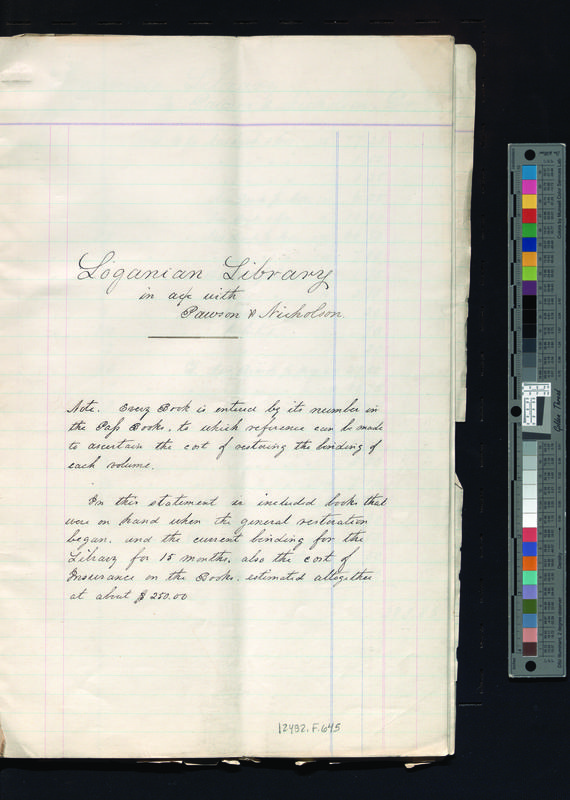 Loganian Library
in a/c with
Pawson & Nicholson.
Note. Every Book is entered by its number in
the Pass Books, to which reference can be made
to ascertain the cost of restoring the binding of
each volume.
In this statement is included books that
were on hand when the general restoration
began, and the current binding for the
Library for 15 months, also the cost of
Insurance on the Books, estimated altogether
at about $250.00
12492.F.645
Golden Thread